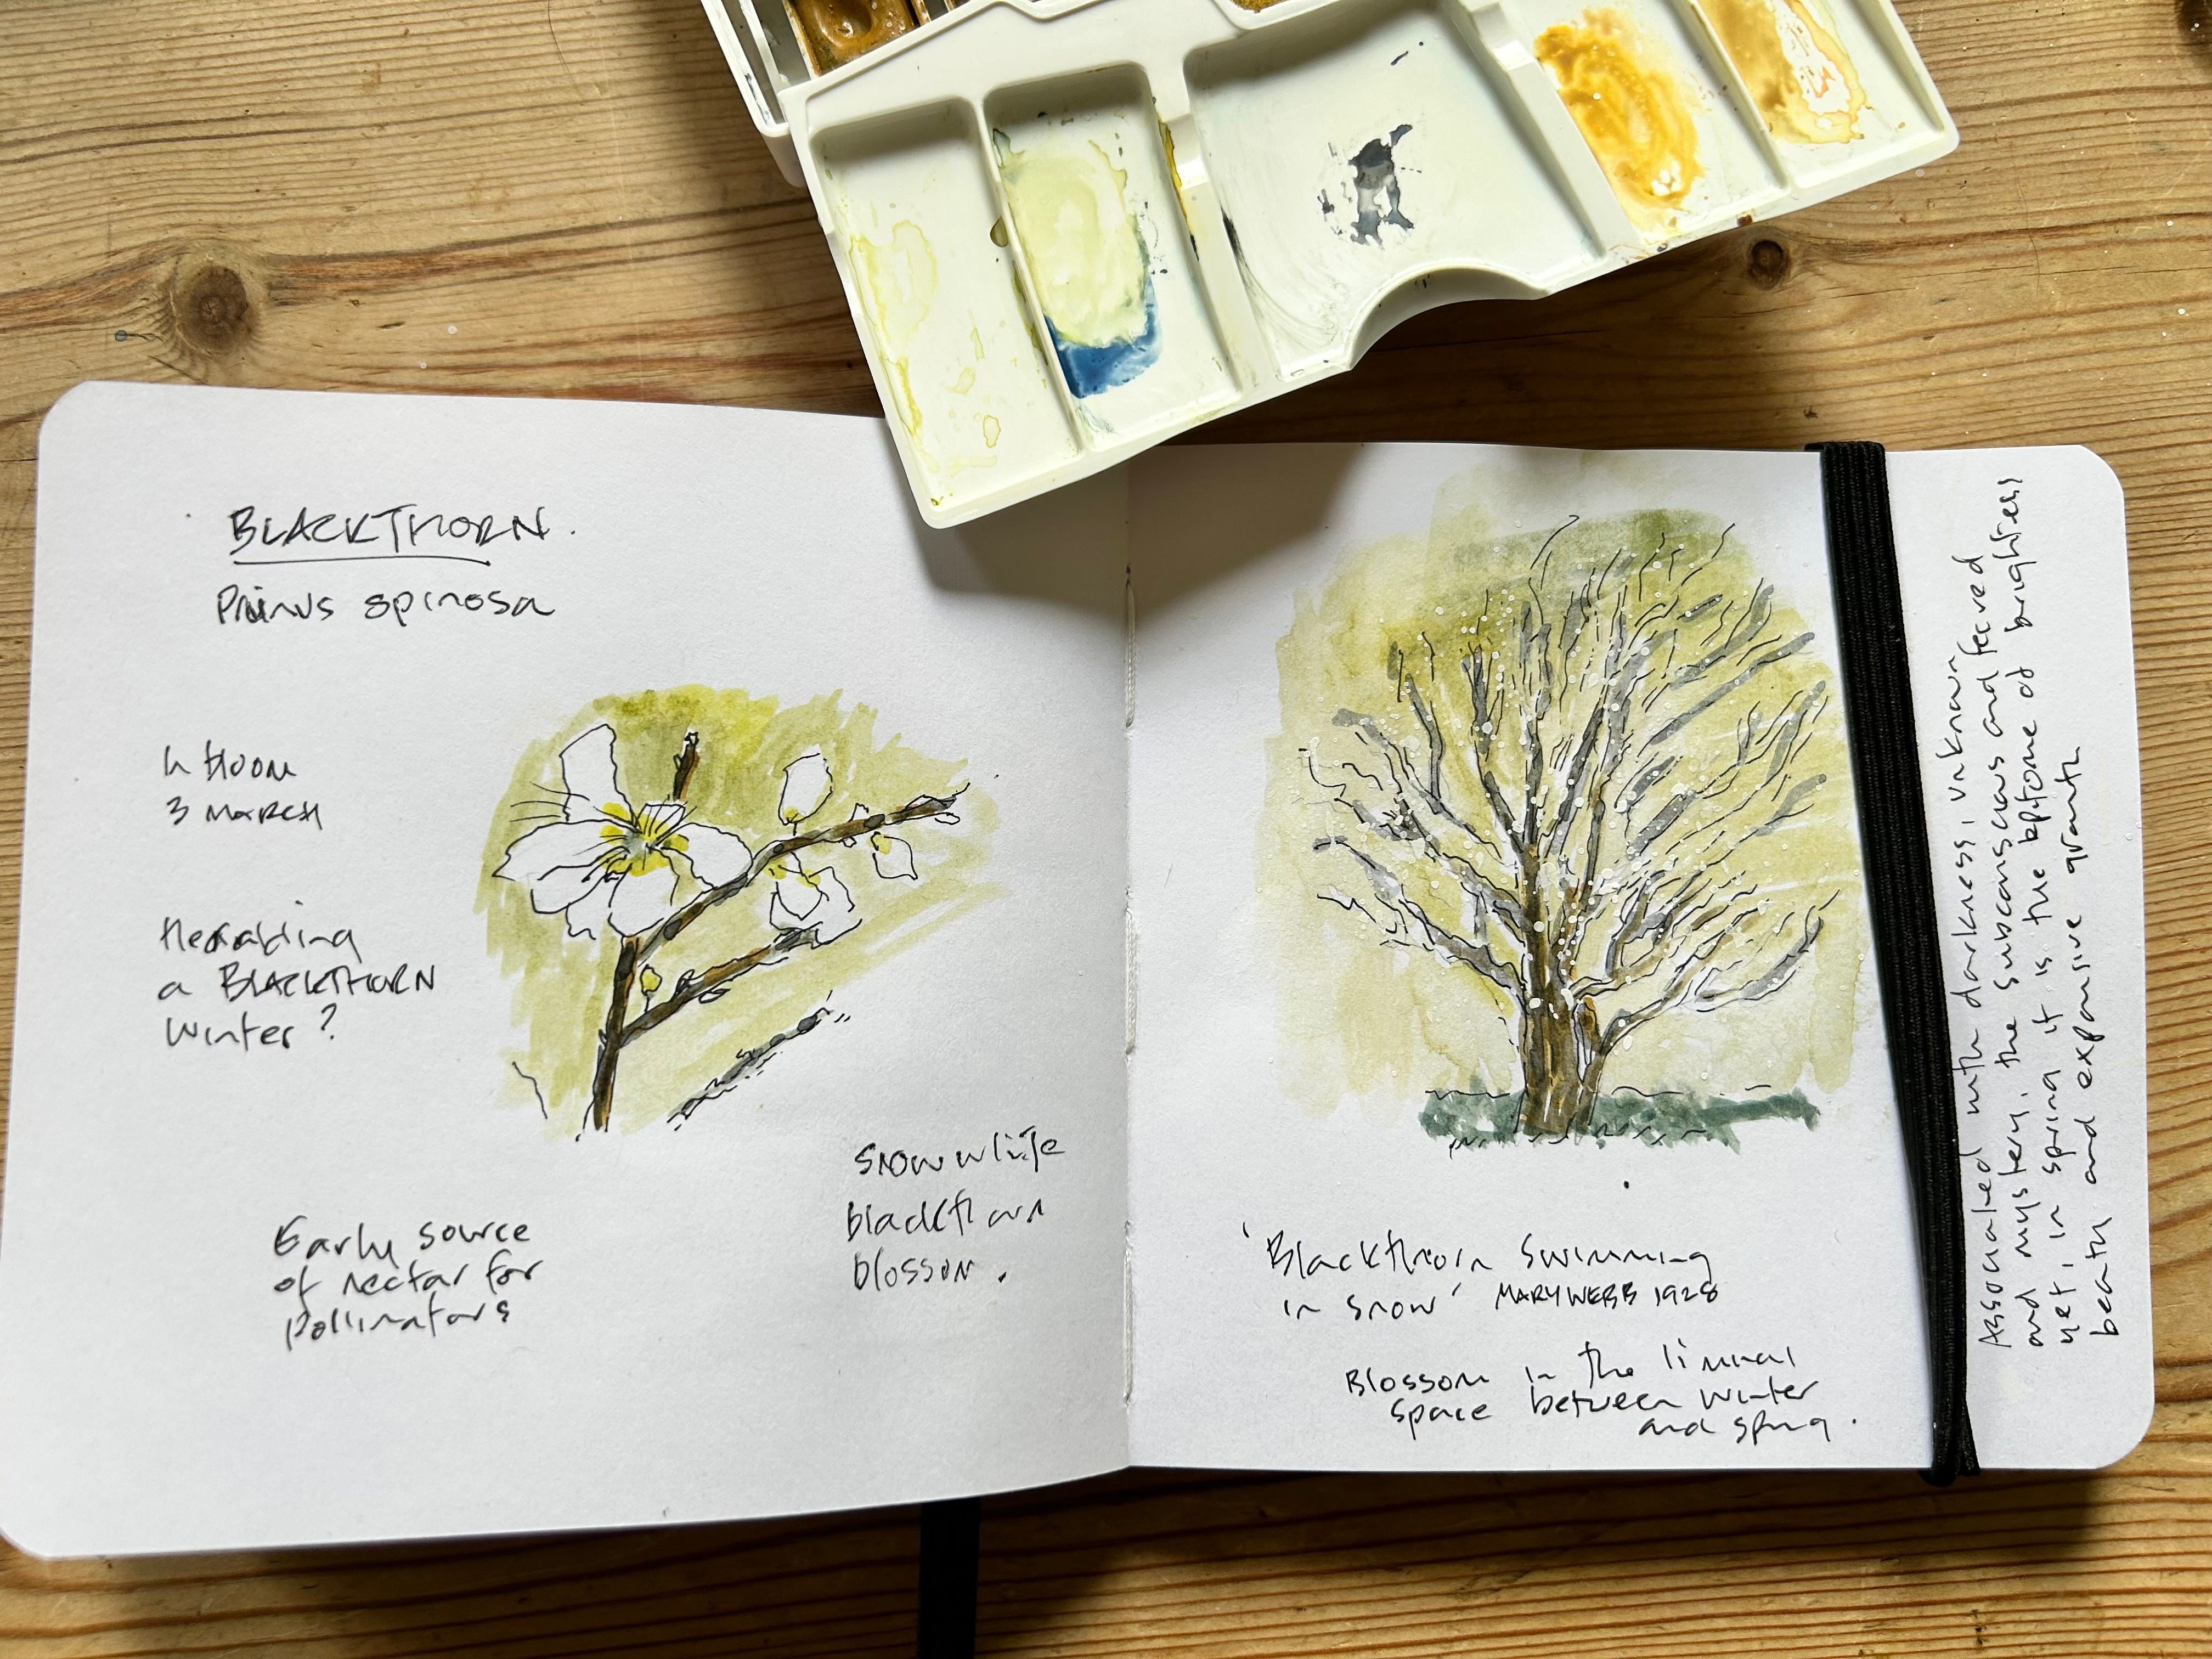 BLACKTHORN.
Prunus spinosa
In bloom
3 MARCH
Heralding
a BLACKTHORN
Winter?
Early source
of nectar for
pollinators
Snow white
blackthorn
blossom.
'Blackthorn Swimming
in snow' MARY WEBB 1928
Blossom in the liminal
space between winter
and spring.
Associated with darkness, unknown
and mystery, the subconscious and feared
yet, in spring it is the epitome of brightness
beauty and expansive growth